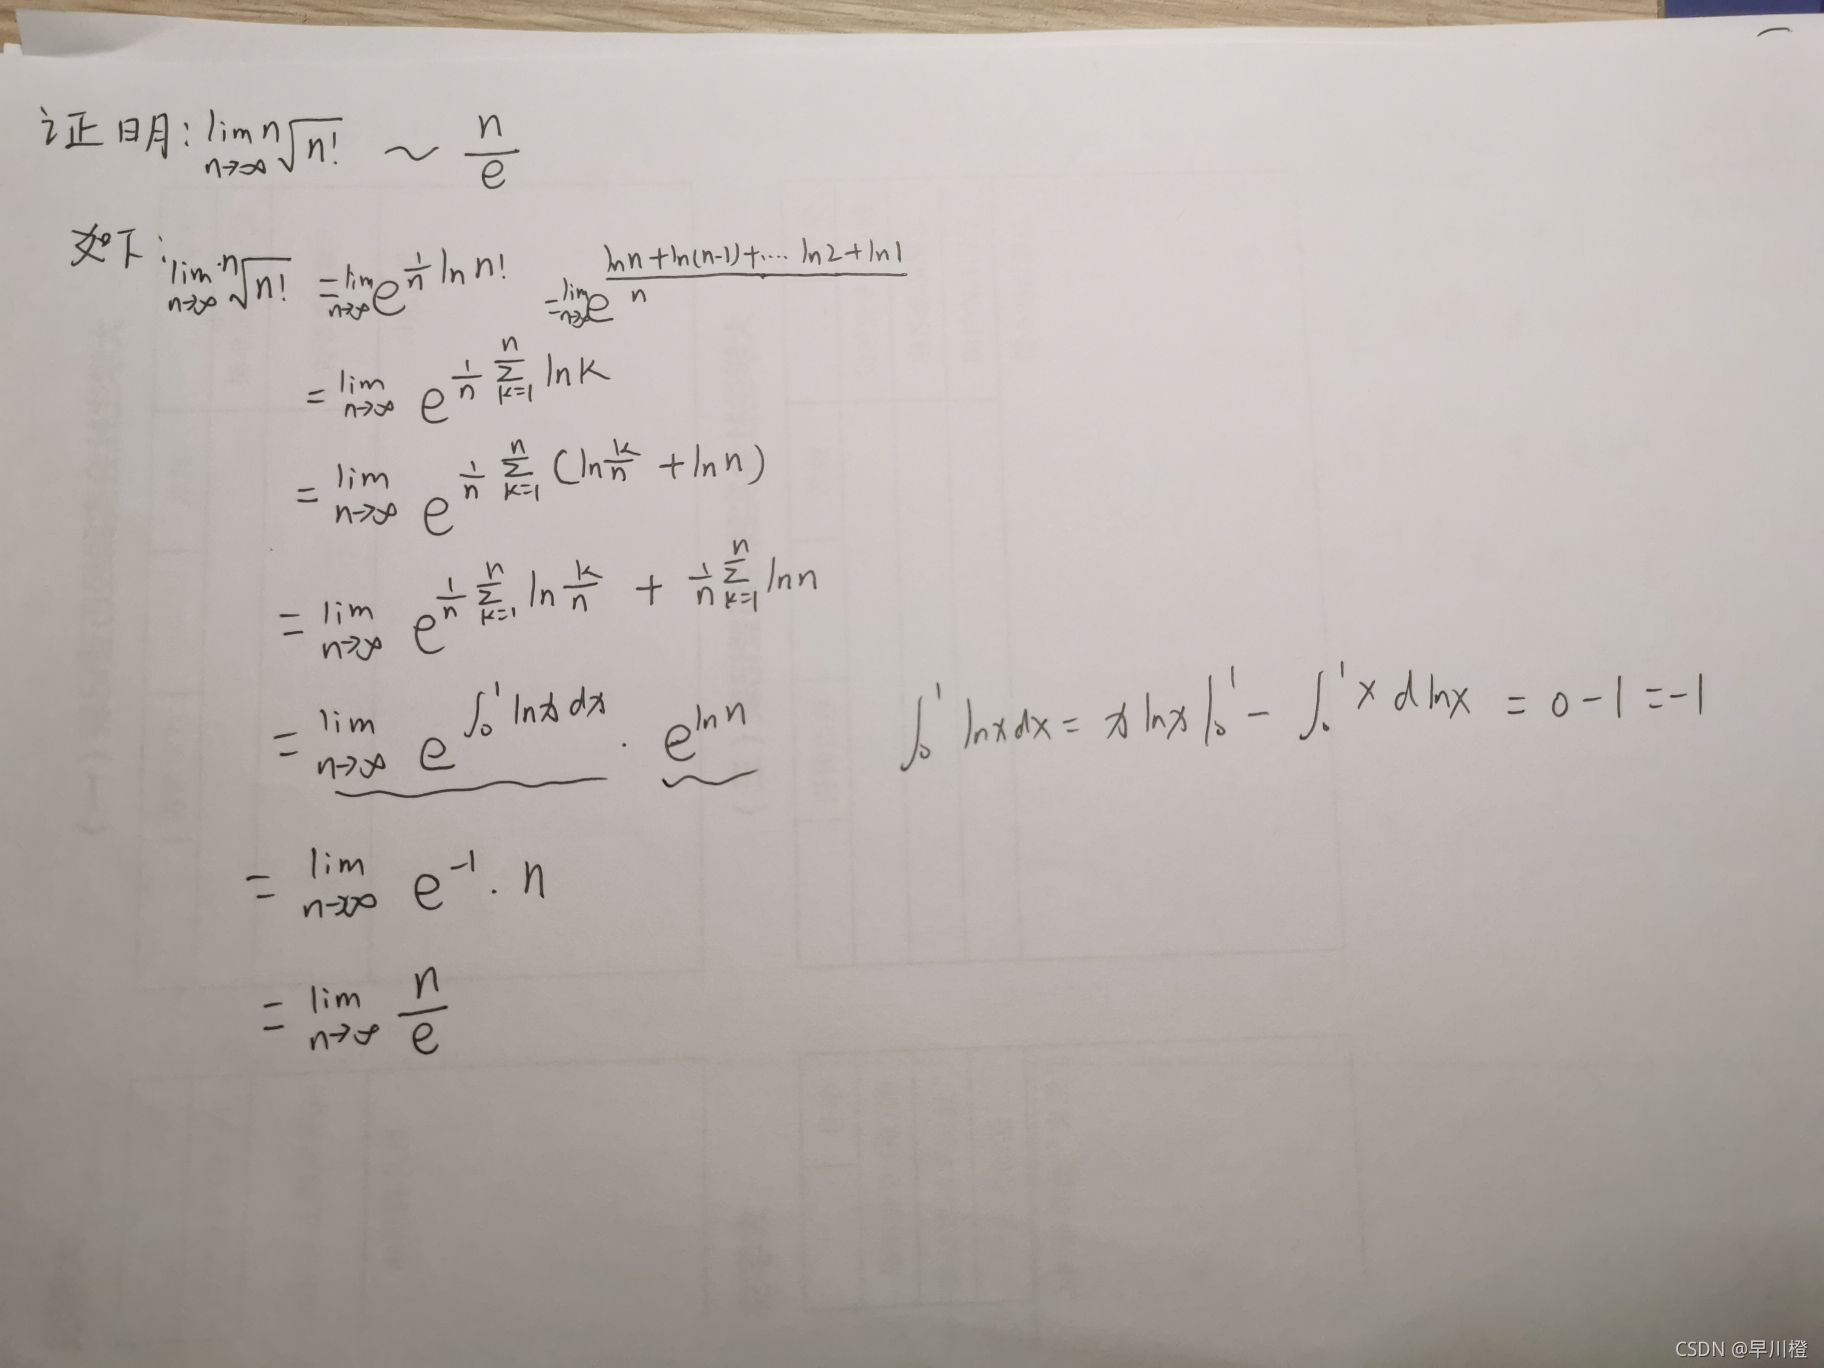 证明: lim_{n→∞} ⁿ√n! ~ n/e
如下: lim_{n→∞} ⁿ√n! = lim_{n→∞} e^{1/n ln n!} = lim_{n→∞} e^{(ln n + ln(n-1) + ... ln2 + ln1)/n}
= lim_{n→∞} e^{1/n ∑_{k=1}^{n} ln k}
= lim_{n→∞} e^{1/n ∑_{k=1}^{n} (ln k/n + ln n)}
= lim_{n→∞} e^{1/n ∑_{k=1}^{n} ln k/n + 1/n ∑_{k=1}^{n} ln n}
= lim_{n→∞} e^{∫_0^1 ln x dx} · e^{ln n} ∫_0^1 ln x dx = x ln x |_0^1 - ∫_0^1 x d ln x = 0 - 1 = -1
= lim_{n→∞} e^{-1} · n
= lim_{n→∞} n/e
CSDN @早川橙